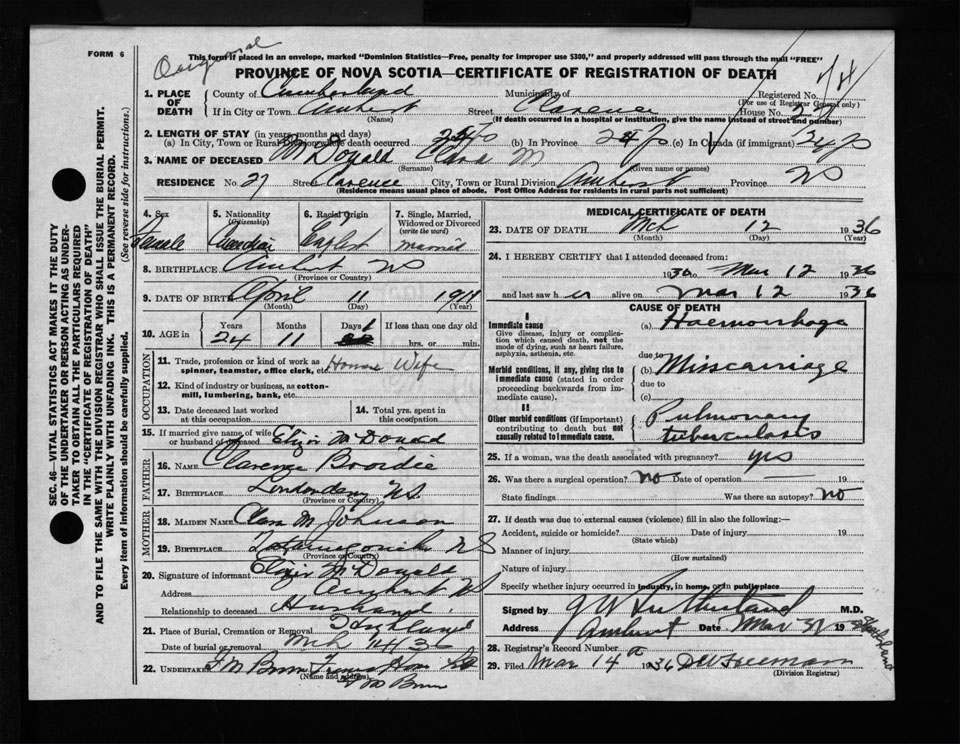 FORM 6
Original
This form if placed in an envelope, marked "Dominion Statistics—Free, penalty for improper use $300," and properly addressed will pass through the mail "FREE"
PROVINCE OF NOVA SCOTIA—CERTIFICATE OF REGISTRATION OF DEATH
1. PLACE OF DEATH
County of Cumberland Municipality of Registered No.
(For use of Registrar General only)
If in City or Town Amherst Street Clarence House No. 27
(Name) (If death occurred in a hospital or institution, give the name instead of street and number)
2. LENGTH OF STAY (in years, months and days)
(a) In City, Town or Rural Division where death occurred (b) In Province 24 (c) In Canada (if immigrant) 24
3. NAME OF DECEASED McDonald Clara M
(Surname) (Given name or names)
RESIDENCE No. 27 Street Clarence City, Town or Rural Division Amherst Province NS
(Residence means usual place of abode. Post Office Address for residents in rural parts not sufficient)
SEC. 46—VITAL STATISTICS ACT MAKES IT THE DUTY
OF THE UNDERTAKER OR PERSON ACTING AS UNDER-
TAKER TO OBTAIN ALL THE PARTICULARS REQUIRED
IN THE "CERTIFICATE OF REGISTRATION OF DEATH"
AND TO FILE THE SAME WITH THE DIVISION REGISTRAR WHO SHALL ISSUE THE BURIAL PERMIT.
WRITE PLAINLY WITH UNFADING INK. THIS IS A PERMANENT RECORD.
Every item of information should be carefully supplied. (See reverse side for instructions.)
4. Sex 5. Nationality (Citizenship) 6. Racial Origin 7. Single, Married, Widowed or Divorced (write the word)
Female Canadian English married
8. BIRTHPLACE Amherst NS
(Province or Country)
9. DATE OF BIRTH April 11 1911
(Month) (Day) (Year)
10. AGE in Years Months Days If less than one day old
24 11 1 hrs. or min.
OCCUPATION
11. Trade, profession or kind of work as spinner, teamster, office clerk, etc. House Wife
12. Kind of industry or business, as cotton-mill, lumbering, bank, etc.
13. Date deceased last worked at this occupation 14. Total yrs. spent in this occupation
15. If married give name of wife or husband of deceased McDonald
FATHER
16. NAME Clarence
17. Birthplace Londonderry NS
(Province or Country)
MOTHER
18. MAIDEN NAME Clara M Johnson
19. Birthplace NS
(Province or Country)
20. Signature of informant McDonald
Address Amherst NS
Relationship to deceased Husband
21. Place of Burial, Cremation or Removal Highland
Date of burial or removal Mch 14 36
22. Undertaker
(Name and address)
MEDICAL CERTIFICATE OF DEATH
23. DATE OF DEATH Mch 12 1936
(Month) (Day) (Year)
24. I HEREBY CERTIFY that I attended deceased from:
1936 to Mar 12 1936
and last saw her alive on Mar 12 1936
CAUSE OF DEATH
I
Immediate cause
Give disease, injury or complication which caused death, not the mode of dying, such as heart failure, asphyxia, asthenia, etc.
(a) Haemorrhage
due to
Morbid conditions, if any, giving rise to immediate cause (stated in order proceeding backwards from immediate cause).
(b) Miscarriage
due to
(c)
II
Other morbid conditions (if important) contributing to death but not causally related to immediate cause.
Pulmonary
tuberculosis
25. If a woman, was the death associated with pregnancy? yes
26. Was there a surgical operation? No Date of operation —
State findings Was there an autopsy? no
27. If death was due to external causes (violence) fill in also the following:—
Accident, suicide or homicide? Date of injury 19
(State which)
Manner of injury
(How sustained)
Nature of injury
Specify whether injury occurred in industry, in home, or in public place
Signed by Sutherland M.D.
Address Amherst Date Mar 19
28. Registrar's Record Number
29. Filed Mar 14 1936 Freeman
(Division Registrar)